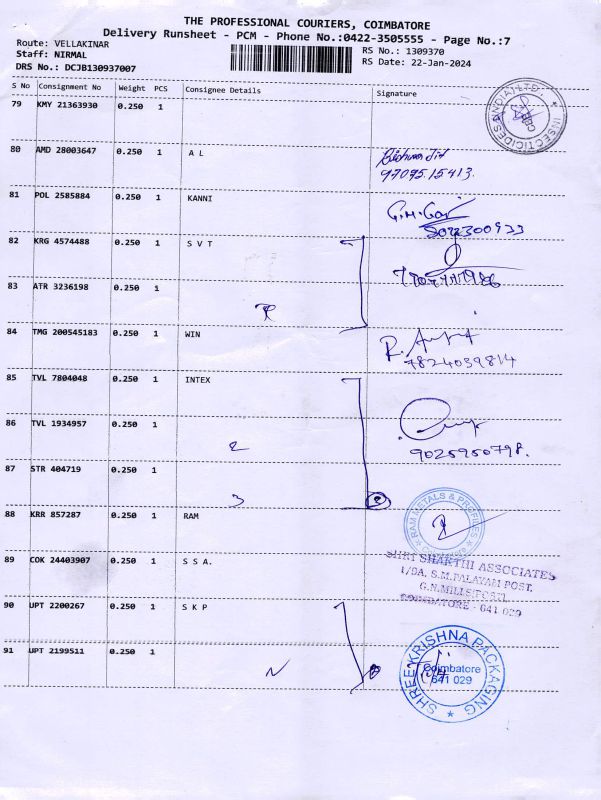 THE PROFESSIONAL COURIERS, COIMBATORE
Delivery Runsheet - PCM - Phone No.:0422-3505555 - Page No.:7
Route: VELLAKINAR
Staff: NIRMAL
DRS No.: DCJB130937007
RS No.: 1309370
RS Date: 22-Jan-2024
S No Consignment No Weight PCS Consignee Details Signature
79 KMY 21363930 0.250 1
INSECTICIDES (INDIA) LTD
CBE
80 AMD 28003647 0.250 1 A L
9709515413.
81 POL 2585884 0.250 1 KANNI
82 KRG 4574488 0.250 1 S V T
83 ATR 3236198 0.250 1
84 TMG 200545183 0.250 1 WIN
7824039814
85 TVL 7804048 0.250 1 INTEX
86 TVL 1934957 0.250 1
2
9025950798.
87 STR 404719 0.250 1
3
88 KRR 857287 0.250 1 RAM
RAM METALS & PROFILES
89 COK 24403907 0.250 1 S S A.
SHRI SHAKTHI ASSOCIATES
1/9A, S.M.PALAYAM POST,
G.N.MILLS POST,
COIMBATORE - 641 029
90 UPT 2200267 0.250 1 S K P
91 UPT 2199511 0.250 1
SHREE KRISHNA PACKAGING
Coimbatore
641 029